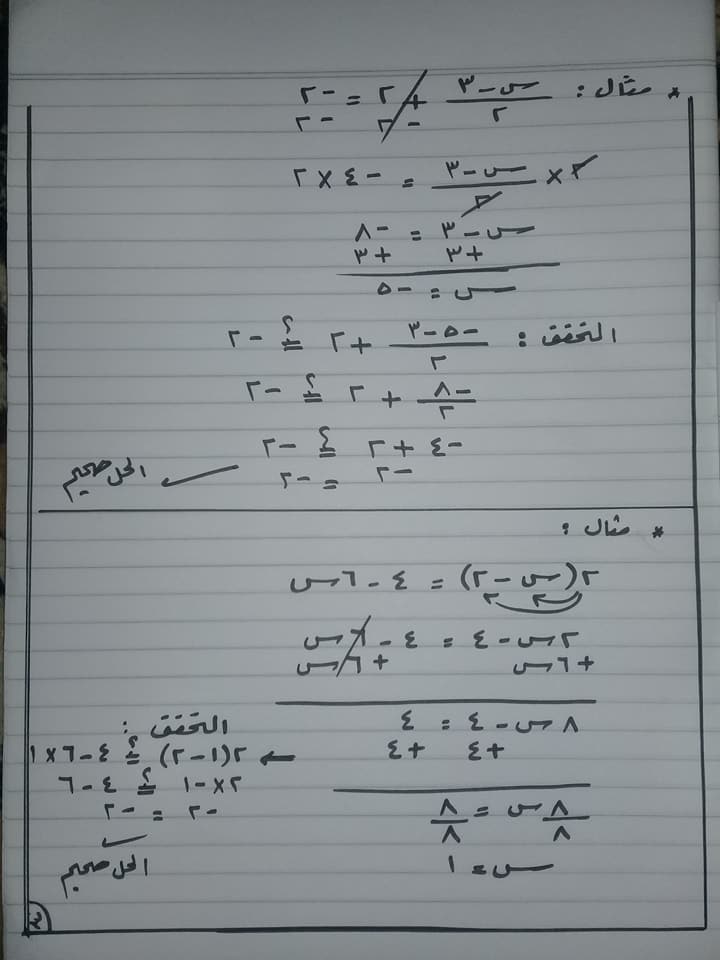 * مثال : (س - ٣)/٢ + ٢ = -٢
-٢ -٢
٢ × (س - ٣)/٢ = -٤ × ٢
س - ٣ = -٨
+٣ +٣
س = -٥
التحقق : (-٥-٣)/٢ + ٢ ≟ -٢
-٨/٢ + ٢ ≟ -٢
-٤ + ٢ ≟ -٢
-٢ = -٢ الحل صحيح
* مثال :
٢(س - ٢) = ٤ - ٦س
٢س - ٤ = ٤ - ٦س
+٦س +٦س
٨س - ٤ = ٤
+٤ +٤
٨س/٨ = ٨/٨
س = ١
التحقق :
← ٢(١-٢) ≟ ٤-٦×١
٢×-١ ≟ ٤-٦
-٢ = -٢
الحل صحيح